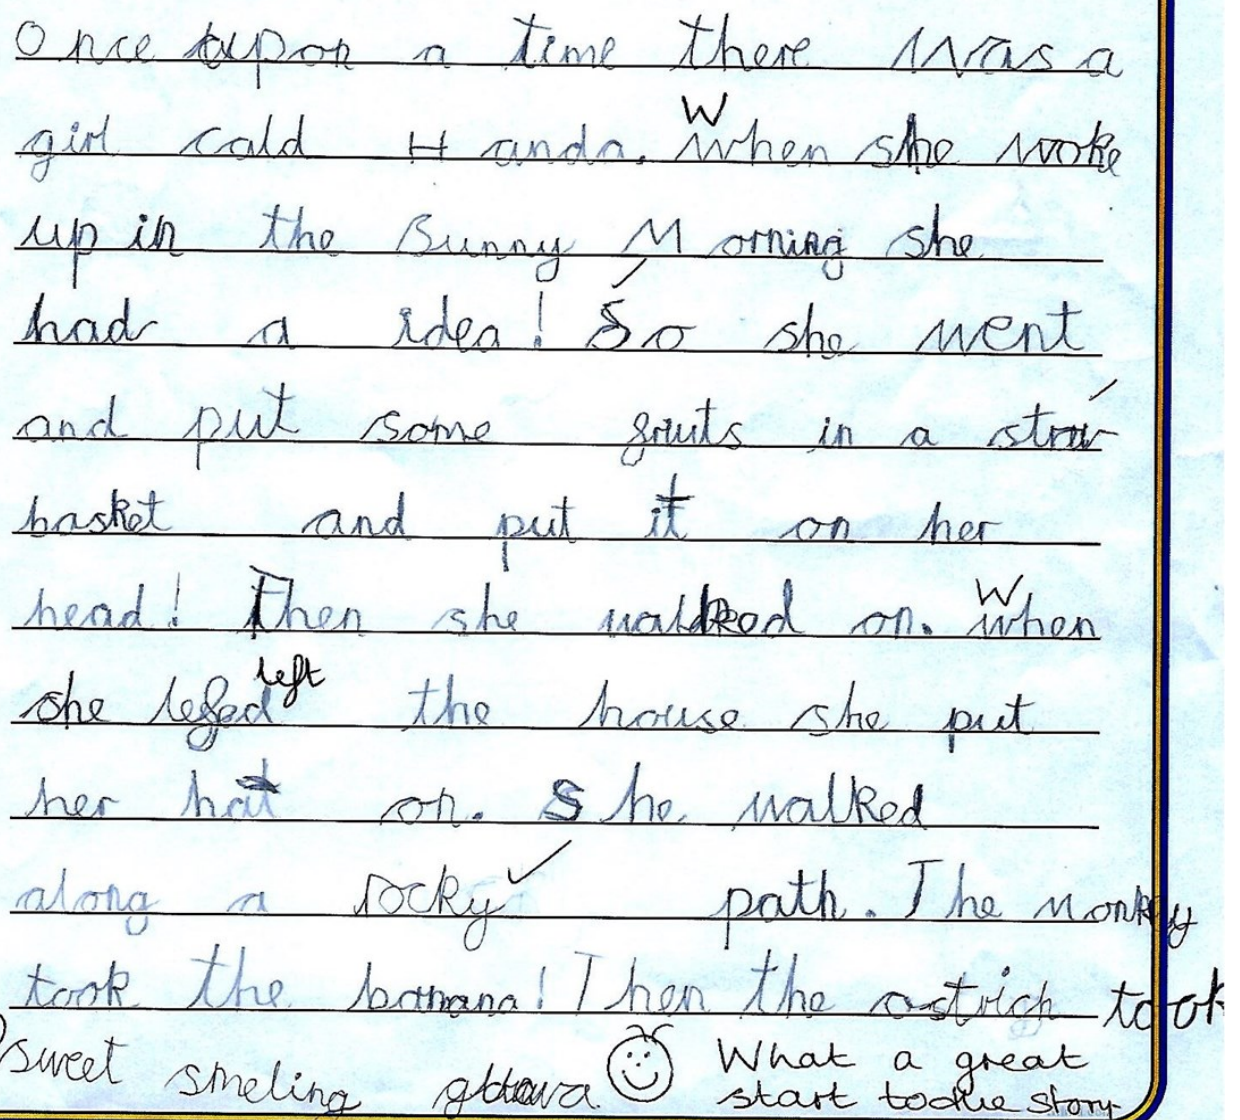 Once upon a time there was a
girl cald Handa. W When she woke
up in the Sunny Morning she
had a idea! So she went
and put some fruits in a straw
basket and put it on her
head! Then she walked on. W When
she lefed left the house she put
her hat on. She walked
along a rocky path. The monkey
took the banana! Then the ostrich took
sweet smeling guava What a great
start to the story.